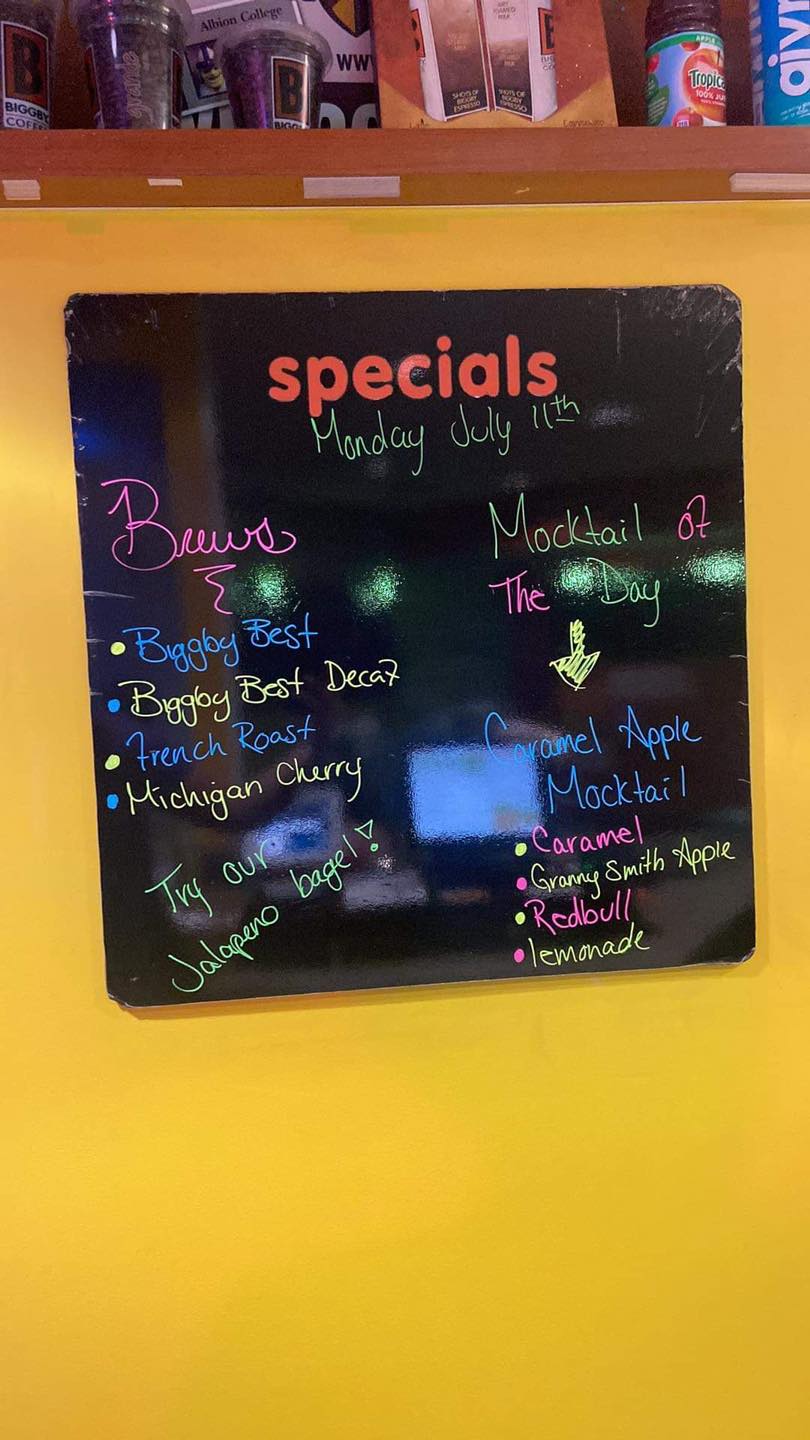 Albion College
WWW
BIGGBY
COFFEE
grande
B
BIGG
SHOTS OF
BIGGBY
ESPRESSO
SHOTS OF
BIGGBY
ESPRESSO
APPLE
Tropic
100% JU
specials
Monday July 11th
Brews
• Biggby Best
• Biggby Best Decaf
• French Roast
• Michigan Cherry
Try our
Jalapeno bagel!
Mocktail of
The Day
Caramel Apple
Mocktail
• Caramel
• Granny Smith Apple
• Redbull
• lemonade